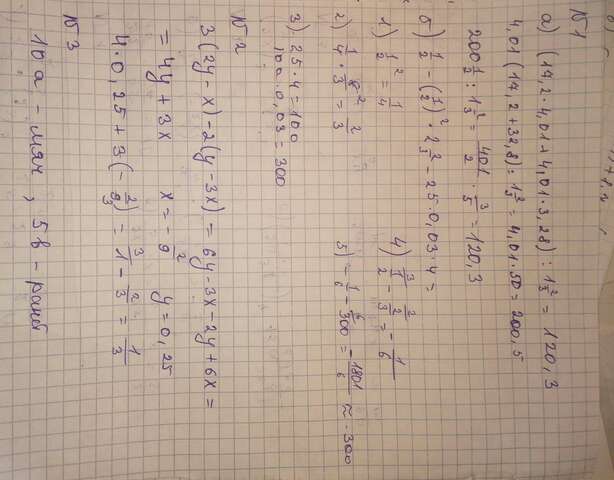 №1
а) (17,2·4,01+4,01·3,28):1 2/3 = 120,3
4,01(17,2+32,8):1 2/3 = 4,01·50=200,5
200 1/2 : 1 2/3 = 401/2 · 3/5 = 120,3
б) 1/2 - (1/2)² · 2 2/3 - 25·0,03·4=
1) 1/2² = 1/4
2) 1/4 · 8²/3 = 2/3
3) 25·4=100
100·0,03=300
4) 1³/2 - 2²/3 = -1/6
5) -1/6 - 300⁶ = -1801/6 ≈ -300
№2
3(2y-x)-2(y-3x) = 6y-3x-2y+6x =
= 4y+3x x=-2/9 y=0,25
4·0,25+3(-2/9₃) = 1³/1 - 2/3 = 1/3
№3
10а - мяч, 5в -